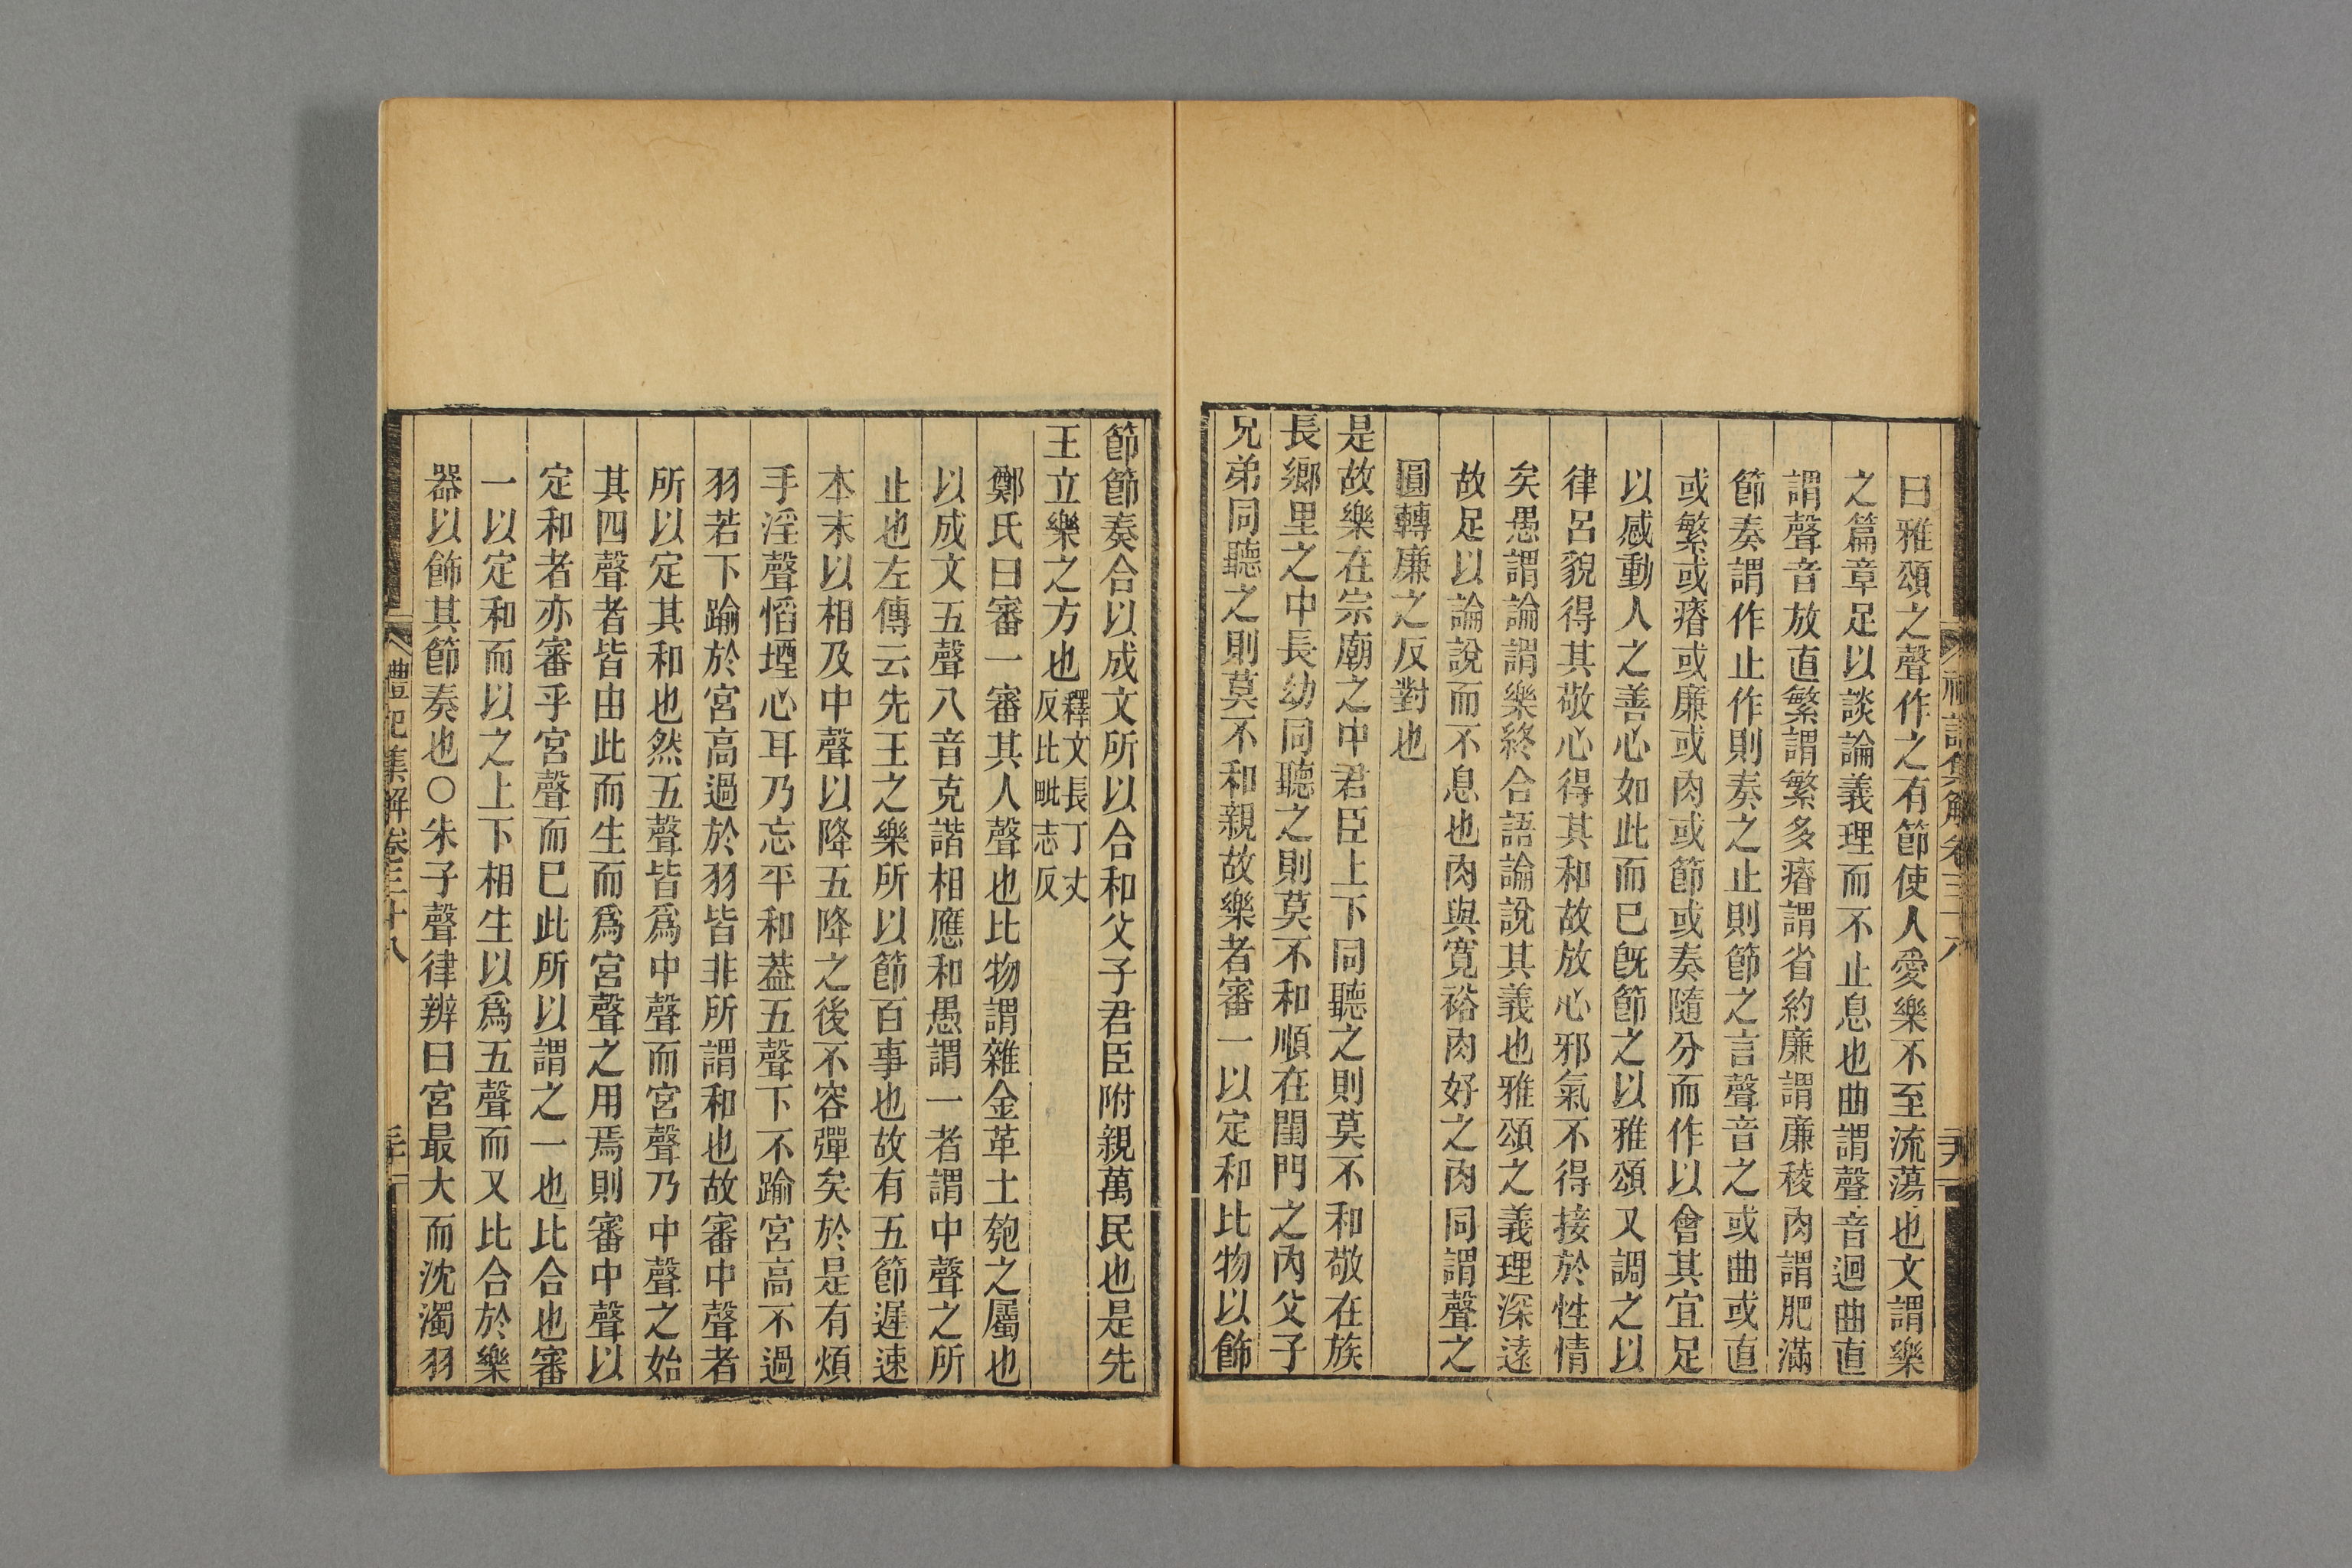 曰雅頌之聲作之有節使人愛樂不至流蕩也文謂樂
之篇章足以談論義理而不止息也曲謂聲音迴曲直
謂聲音放直繁謂繁多瘠謂省約廉謂廉稜肉謂肥滿
節奏謂作止作則奏之止則節之言聲音之或曲或直
或繁或瘠或廉或肉或節或奏隨分而作以會其宜足
以感動人之善心如此而已旣節之以雅頌又調之以
律呂貌得其敬心得其和故放心邪氣不得接於性情
矣愚謂論謂樂終合語論說其義也雅頌之義理深遠
故足以論說而不息也肉與寬裕肉好之肉同謂聲之
圓轉廉之反對也
是故樂在宗廟之中君臣上下同聽之則莫不和敬在族
長鄉里之中長幼同聽之則莫不和順在閨門之內父子
兄弟同聽之則莫不和親故樂者審一以定和比物以飾
節節奏合以成文所以合和父子君臣附親萬民也是先
王立樂之方也釋文長丁丈反比毗志反
鄭氏曰審一審其人聲也比物謂雜金革土匏之屬也
以成文五聲八音克諧相應和愚謂一者謂中聲之所
止也左傳云先王之樂所以節百事也故有五節遲速
本末以相及中聲以降五降之後不容彈矣於是有煩
手淫聲慆堙心耳乃忘平和葢五聲下不踰宮高不過
羽若下踰於宮高過於羽皆非所謂和也故審中聲者
所以定其和也然五聲皆爲中聲而宮聲乃中聲之始
其四聲者皆由此而生而爲宮聲之用焉則審中聲以
定和者亦審乎宮聲而已此所以謂之一也比合也審
一以定和而以之上下相生以爲五聲而又比合於樂
器以飾其節奏也○朱子聲律辨曰宮最大而沈濁羽
禮記集解卷三十八